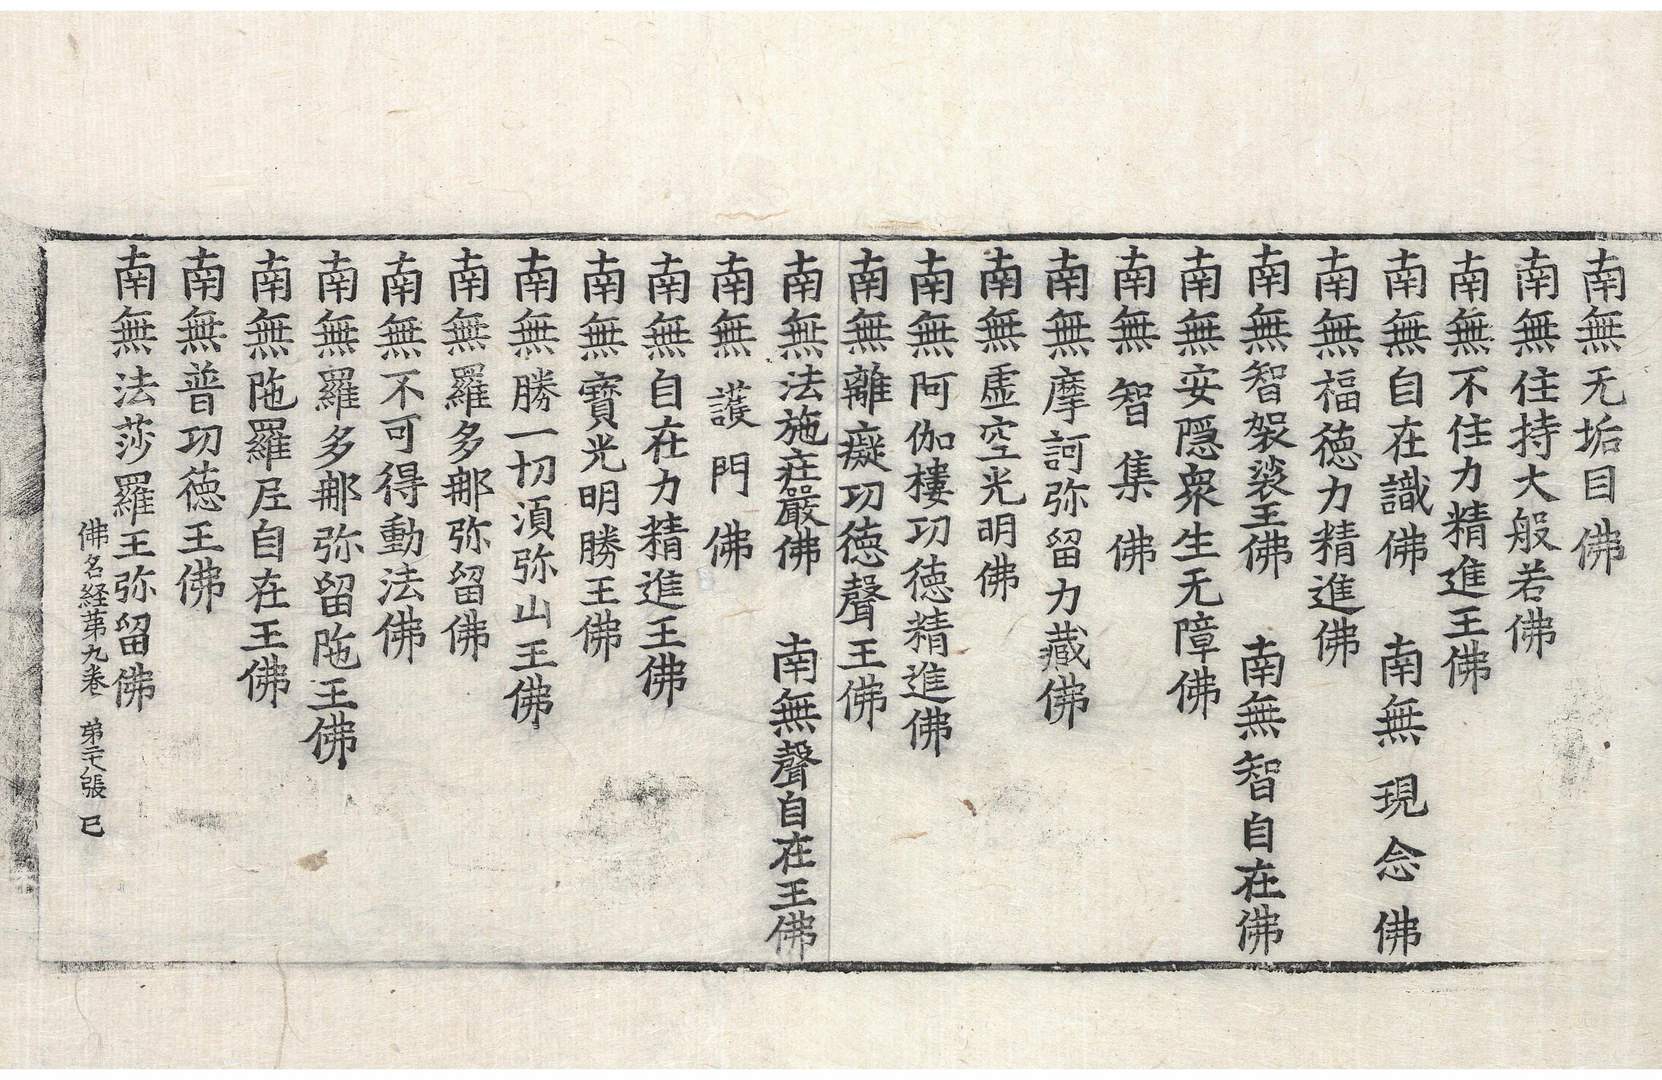 南無无垢目佛
南無住持大般若佛
南無不住力精進王佛
南無自在識佛　南無現念佛
南無福德力精進佛
南無智袈裟王佛　南無智自在佛
南無安隱衆生无障佛
南無智集佛
南無摩訶弥留力藏佛
南無虛空光明佛
南無阿伽樓功德精進佛
南無離癡功德聲王佛
南無法施莊嚴佛　南無聲自在王佛
南無護門佛
南無自在力精進王佛
南無寶光明勝王佛
南無勝一切湏弥山王佛
南無羅多那弥留佛
南無不可得動法佛
南無羅多那弥留陁王佛
南無陁羅尼自在王佛
南無普功德王佛
南無法莎羅王弥留佛
佛名経苐九卷　第二七張　巳